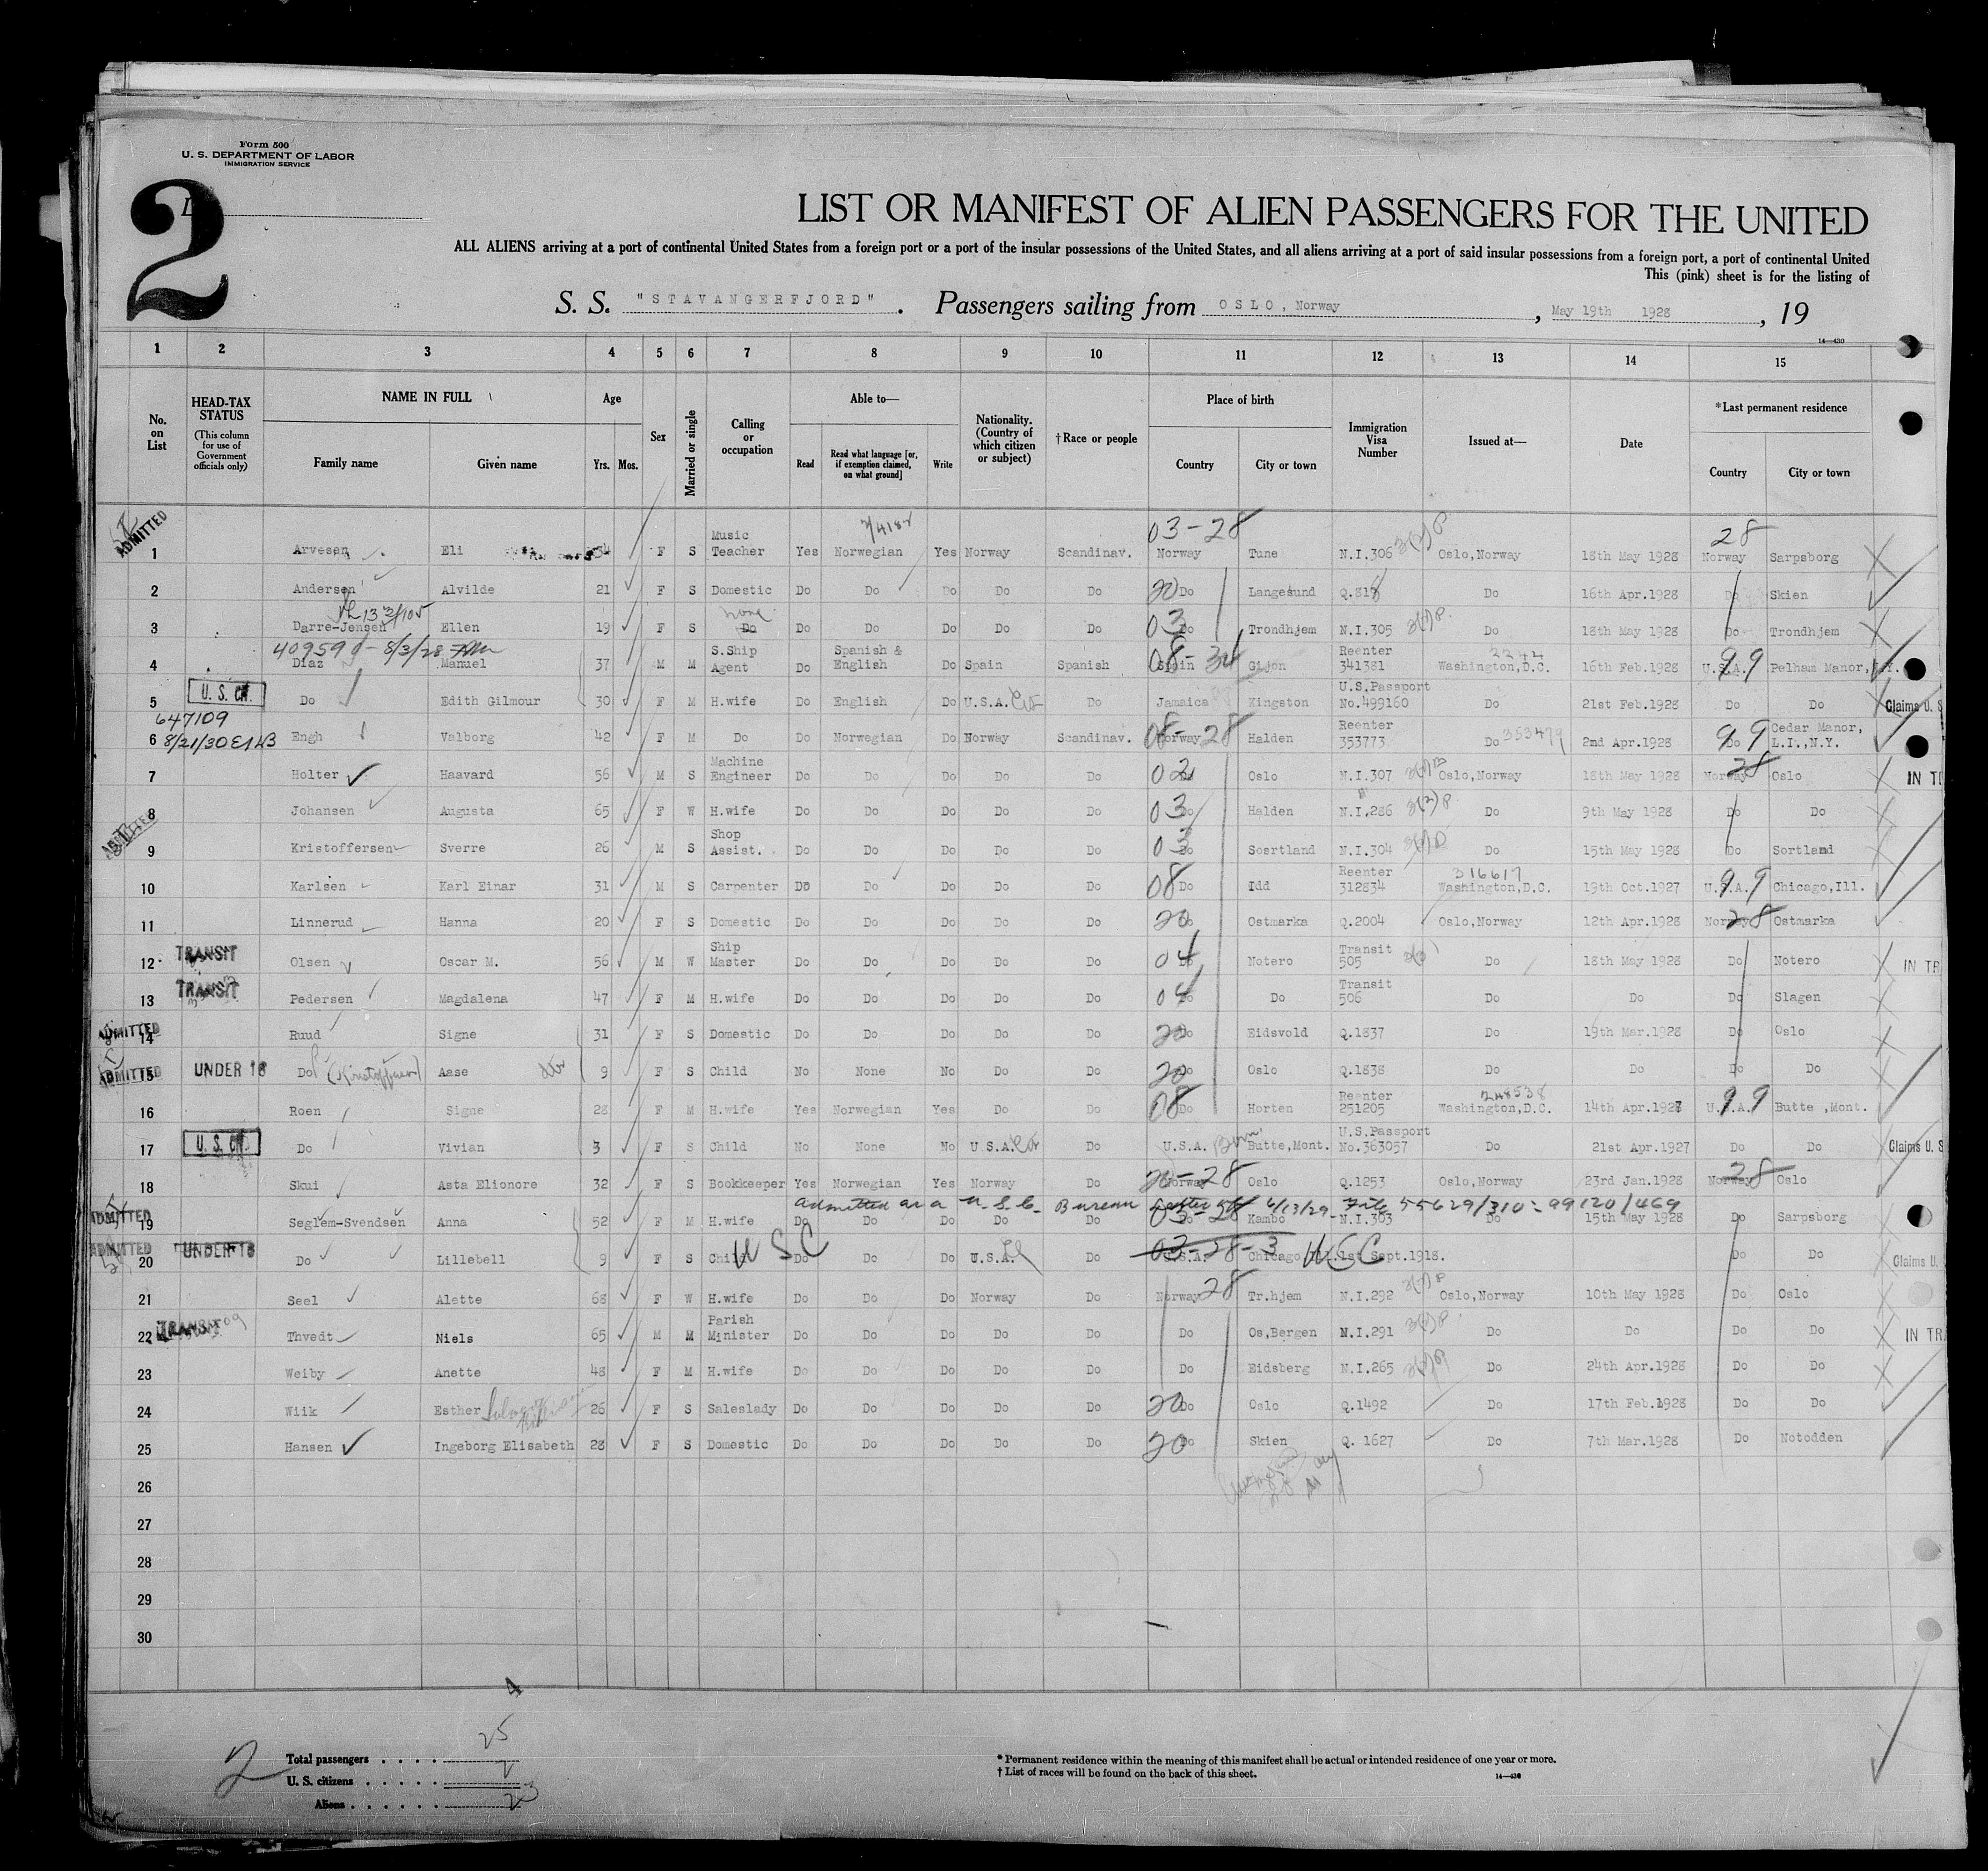 Form 500
U. S. DEPARTMENT OF LABOR
IMMIGRATION SERVICE
2
LIST OR MANIFEST OF ALIEN PASSENGERS FOR THE UNITED
ALL ALIENS arriving at a port of continental United States from a foreign port or a port of the insular possessions of the United States, and all aliens arriving at a port of said insular possessions from a foreign port, a port of continental United
This (pink) sheet is for the listing of
S. S. "STAVANGERFJORD". Passengers sailing from OSLO, Norway, May 19th 1928, 19
14—430
1 2 3 4 5 6 7 8 9 10 11 12 13 14 15
No. on List
HEAD-TAX STATUS (This column for use of Government officials only)
NAME IN FULL
Family name Given name
Age
Yrs. Mos.
Sex
Married or single
Calling or occupation
Able to—
Read Read what language [or, if exemption claimed, on what ground] Write
Nationality. (Country of which citizen or subject)
†Race or people
Place of birth
Country City or town
Immigration Visa Number
Issued at—
Date
*Last permanent residence
Country City or town
ADMITTED 03-28 28
1 Arvesen Eli 54 F S Music Teacher Yes Norwegian Yes Norway Scandinav. Norway Tune N.I.306 3(2)P Oslo,Norway 18th May 1928 Norway Sarpsborg
2 Andersen Alvilde 21 F S Domestic Do Do Do Do Do 20 Do Langesund Q.818 Do 16th Apr.1928 Do Skien
3 Darre-Jensen Ellen 19 F S none Do Do Do Do Do Do 03 Do Trondhjem N.I.305 3(2)P. Do 18th May 1928 Do Trondhjem
409599 - 8/3/28
4 Diaz Manuel 37 M M S.Ship Agent Do Spanish & English Do Spain Spanish 08-34 Spain Gijon Reenter 341381 Washington,D.C. 16th Feb.1928 99 U.S.A. Pelham Manor,N.Y.
5 U. S. C. Do Edith Gilmour 30 F M H.wife Do English Do U.S.A. Do Jamaica Kingston U.S.Passport No.499160 Do 21st Feb.1928 Do Do Claims U. S
647109
6 8/21/30 Engh Valborg 42 F M Do Do Norwegian Do Norway Scandinav. 08-28 Norway Halden Reenter 353773 Do 353479 2nd Apr.1928 99 Do Cedar Manor, L.I.,N.Y.
7 Holter Haavard 56 M S Machine Engineer Do Do Do Do Do 02 Oslo N.I.307 Oslo,Norway 18th May 1928 28 Norway Oslo IN T
8 Johansen Augusta 65 F W H.wife Do Do Do Do Do 03 Do Halden N.I.286 3(2)P Do 9th May 1928 Do Do
ADMITTED
9 Kristoffersen Sverre 26 M S Shop Assist. Do Do Do Do Do 03 Do Soertland N.I.304 Do 15th May 1928 Do Sortland
10 Karlsen Karl Einar 31 M S Carpenter Do Do Do Do Do 08 Do Idd Reenter 312834 316617 Washington,D.C. 19th Oct.1927 99 U.S.A. Chicago,Ill.
11 Linnerud Hanna 20 F S Domestic Do Do Do Do Do 20 Do Ostmarka Q.2004 Oslo,Norway 12th Apr.1928 28 Norway Ostmarka
12 TRANSIT Olsen Oscar M. 56 M W Ship Master Do Do Do Do Do 04 Do Notero Transit 505 Do 18th May 1928 Do Notero IN TR
13 TRANSIT Pedersen Magdalena 47 F M H.wife Do Do Do Do Do 04 Do Do Transit 506 Do Do Do Slagen
ADMITTED 14 Ruud Signe 31 F S Domestic Do Do Do Do Do 20 Do Eidsvold Q.1837 Do 19th Mar.1928 Do Oslo
ADMITTED 15 UNDER 16 Do Aase 9 F S Child No None No Do Do 20 Do Oslo Q.1838 Do Do Do Do
16 Roen Signe 28 F M H.wife Yes Norwegian Yes Do Do 08 Do Horten Reenter 251205 248538 Washington,D.C. 14th Apr.1927 99 U.S.A. Butte ,Mont.
17 U. S. C. Do Vivian 3 F S Child No None No U.S.A. Do U.S.A. Born Butte,Mont. U.S.Passport No.363057 Do 21st Apr.1927 Do Do Claims U. S
18 Skui Asta Elionore 32 F S Bookkeeper Yes Norwegian Yes Norway Do 20-28 Norway Oslo Q.1253 Oslo,Norway 23rd Jan.1928 28 Norway Oslo
Admitted as a U. S. C. Bureau letter 6/13/29 File 55629/310 - 99120/469
ADMITTED 19 Seglem-Svendsen Anna 52 F M H.wife Do Do Do Do Do 03-28 Do Kambo N.I.303 Do 15th May 1928 Do Sarpsborg
ADMITTED 20 UNDER 16 Do Lillebell 9 F S Child USC Do Do Do U.S.A. Do 03-28-3 U.S.A. Chicago Ill.1st Sept.1918. USC Do Do Claims U.
21 Seel Alette 68 F W H.wife Do Do Do Norway Do Norway 28 Tr.hjem N.I.292 Oslo,Norway 10th May 1928 Do Oslo
22 TRANSIT Thvedt Niels 65 M M Parish Minister Do Do Do Do Do Do Os,Bergen N.I.291 Do Do Do Do IN TR
23 Weiby Anette 48 F M H.wife Do Do Do Do Do Do Eidsberg N.I.265 Do 24th Apr.1928 Do Do
24 Wiik Esther 26 F S Saleslady Do Do Do Do Do 20 Do Oslo Q.1492 Do 17th Feb.1928 Do Do
25 Hansen Ingeborg Elisabeth 28 F S Domestic Do Do Do Do Do 20 Do Skien Q. 1627 Do 7th Mar.1928 Do Notodden
26
27
28
29
30
4
2
Total passengers . . . . 25
U. S. citizens . . . . . 2
Aliens . . . . . . 23
*Permanent residence within the meaning of this manifest shall be actual or intended residence of one year or more.
†List of races will be found on the back of this sheet.
14—430